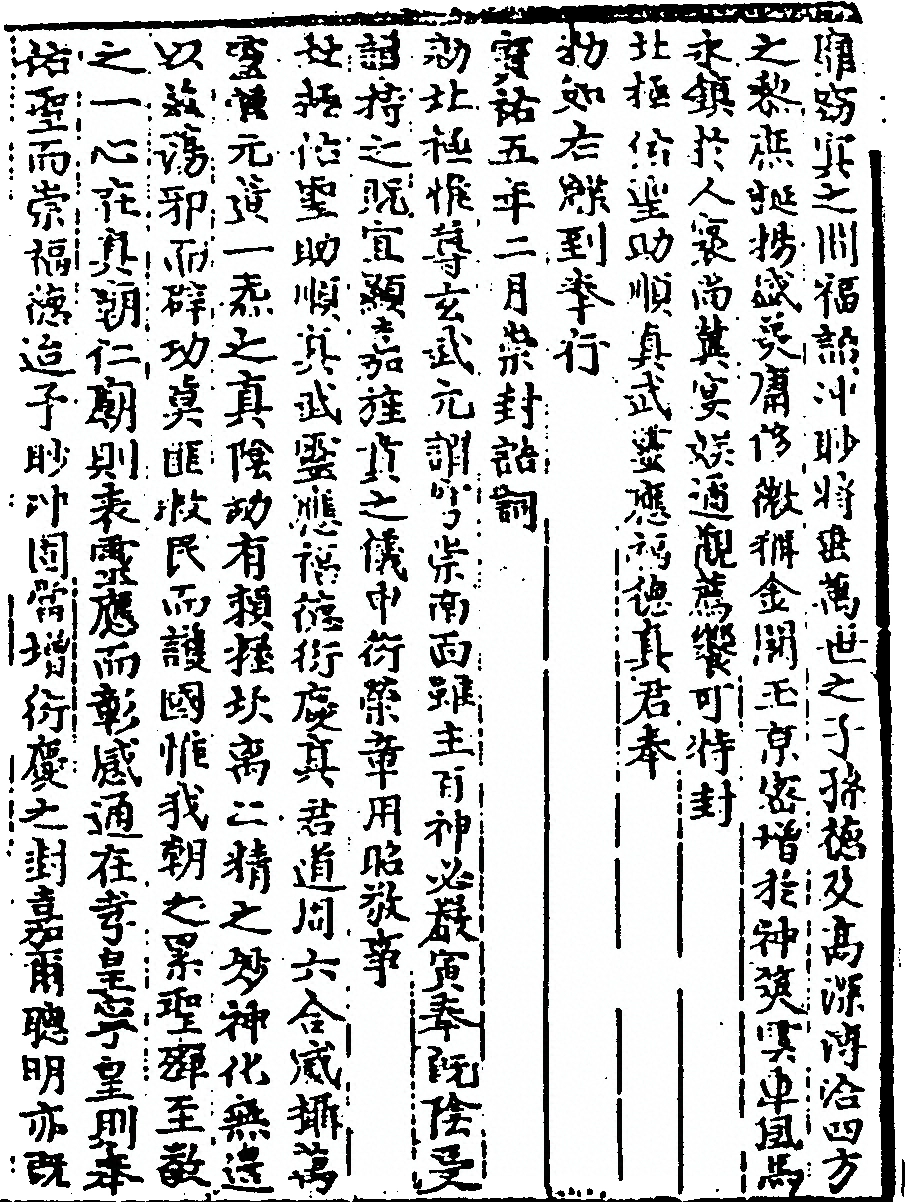 窈冥之間福詔沖眇將畀萬世之子孫德及高深溥洽四方
之黎庶誕揚盛美庸侈徽稱金闕玉京密增於神筭雲車風馬
永鎮於人寰尚冀宴娭遹觀薦饗可特封
北極佑聖助順真武靈應福德真君奉
勑如右牒到奉行
寶祐五年二月崇封誥詞
勑北極惟尊玄武元謂穹崇南面雖主百神必嚴寅奉既陰受
護持之既宜顯嘉旌賁之儀申衍榮章用昭敬事
北極佑聖助順真武靈應福德衍慶真君道周六合威攝萬
靈曾元黃一炁之真陰功有賴拯坎离二精之妙神化無邊
以兹蕩邪而辟功莫匪救民而護國惟我朝之累聖殫至敬
之一心在真朝仁朝則表靈應而彰感通在孝皇寧皇則奉
祐聖而崇福德迨予眇沖固當增衍慶之封嘉爾聰明亦既